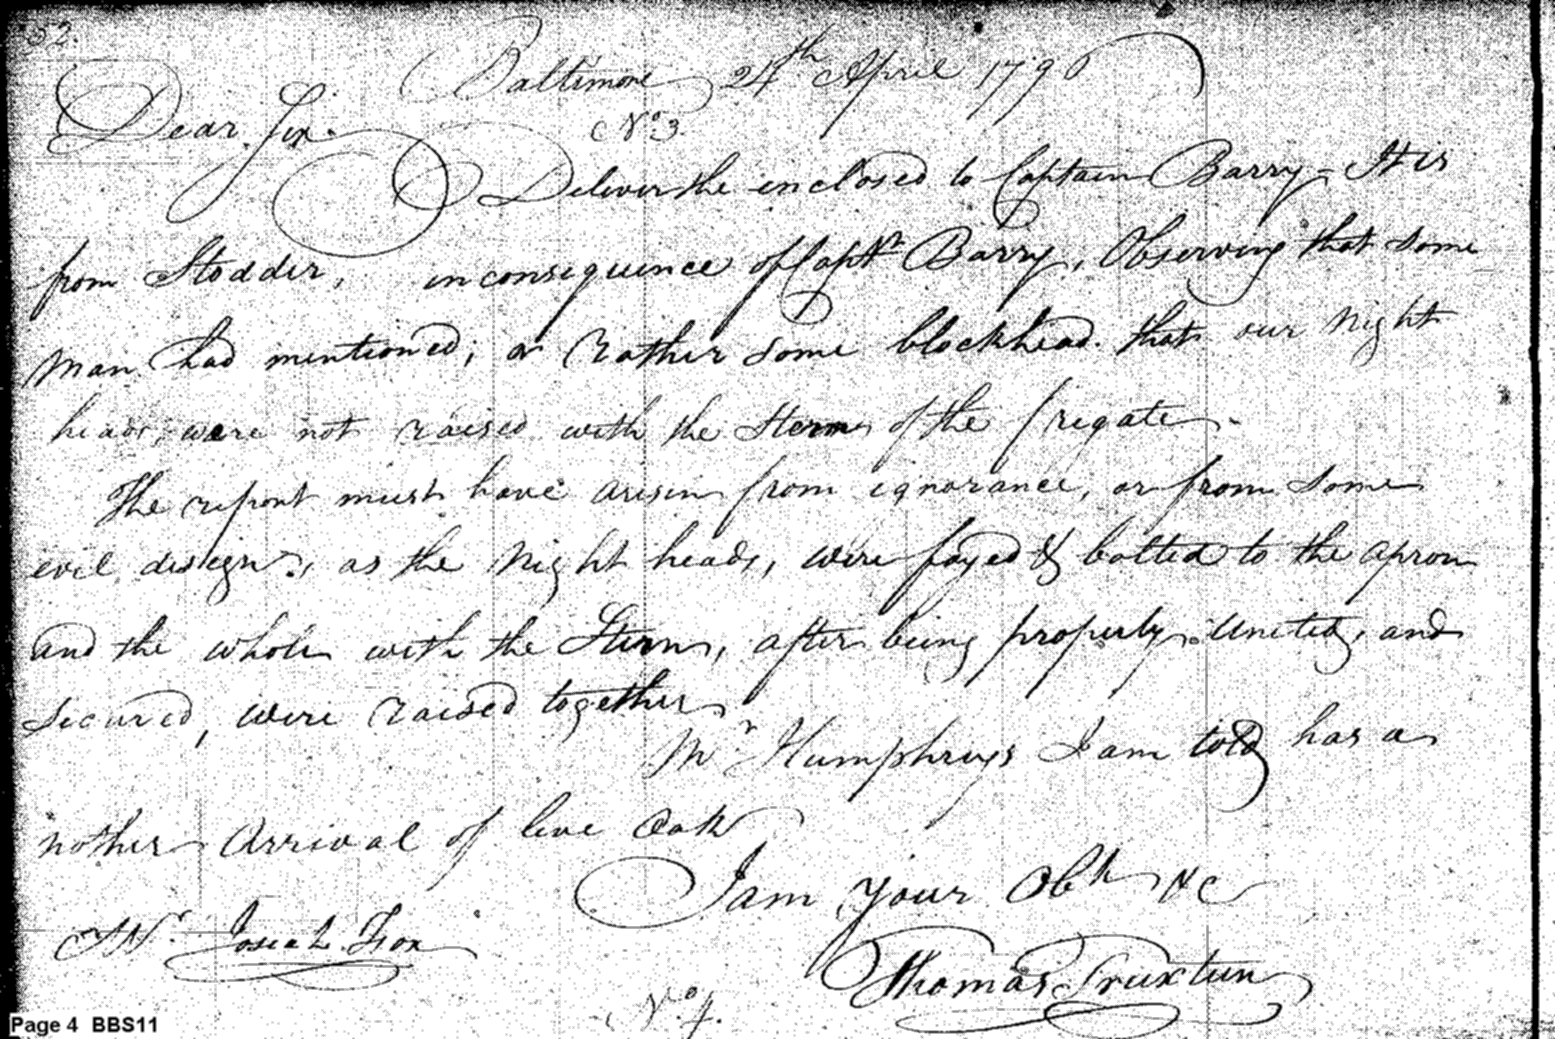 52.
Baltimore 24th April 1796
Dear Sir.
No. 3.
Deliver the enclosed to Captain Barry - It is
from Stodder, in consequence of Captn Barry, Observing that some
man had mentioned; or rather some blockhead. that our night
heads, were not raised with the Stem of the frigate -
The report must have arisen from ignorance, or from some
evil design, as the night heads, were fayed & bolted to the apron
and the whole with the Stem, after being properly united, and
secured, were raised together
Mr Humphreys I am told has a
nother arrival of live Oak
I am your Obt &c
Mr. Josiah Fox
Thomas Truxtun
No. 4.
Page 4 BBS11